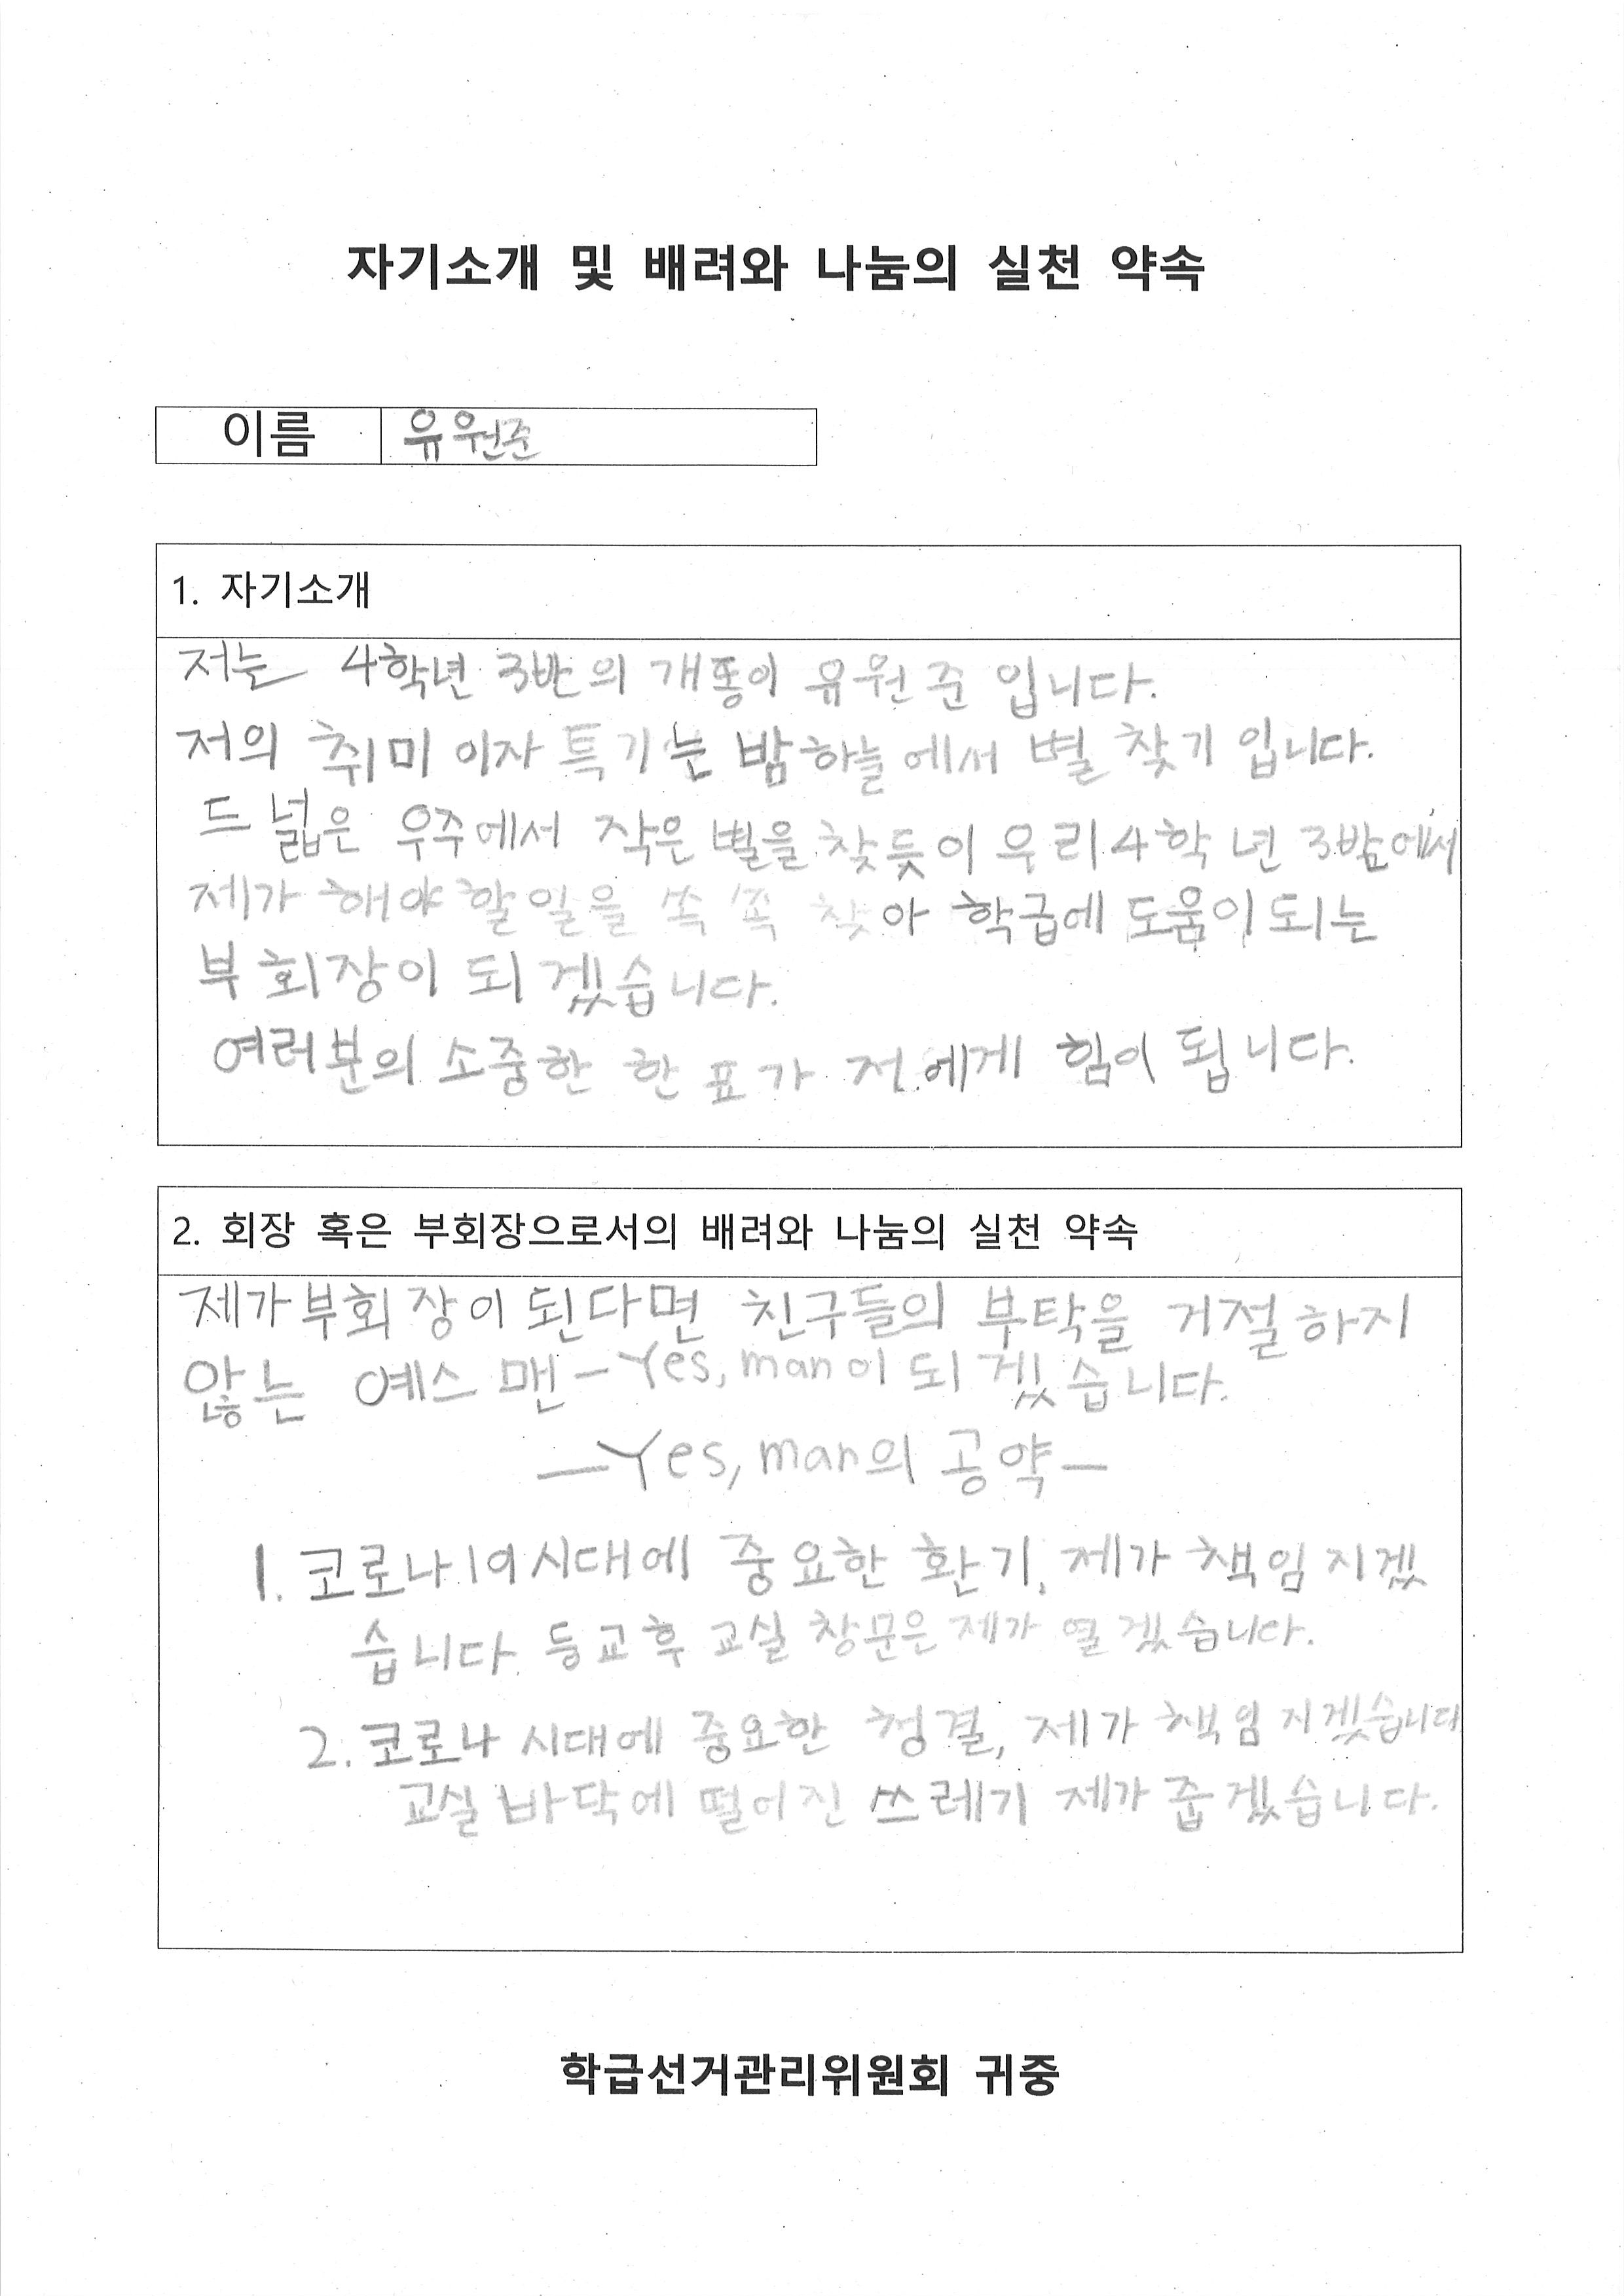 자기소개 및 배려와 나눔의 실천 약속
이름 유원준
1. 자기소개
저는 4학년 3반의 개똥이 유원준 입니다.
저의 취미이자 특기는 밤하늘에서 별 찾기 입니다.
드넓은 우주에서 작은 별을 찾듯이 우리 4학년 3반에서
제가 해야할일을 쏙쏙 찾아 학급에 도움이 되는
부회장이 되겠습니다.
여러분의 소중한 한표가 저에게 힘이 됩니다.
2. 회장 혹은 부회장으로서의 배려와 나눔의 실천 약속
제가 부회장이 된다면 친구들의 부탁을 거절하지
않는 예스맨-Yes, man이 되겠습니다.
-Yes, man의 공약-
1. 코로나19시대에 중요한 환기, 제가 책임지겠
습니다. 등교 후 교실 창문은 제가 열겠습니다.
2. 코로나 시대에 중요한 청결, 제가 책임지겠습니다
교실 바닥에 떨어진 쓰레기 제가 줍겠습니다.
학급선거관리위원회 귀중